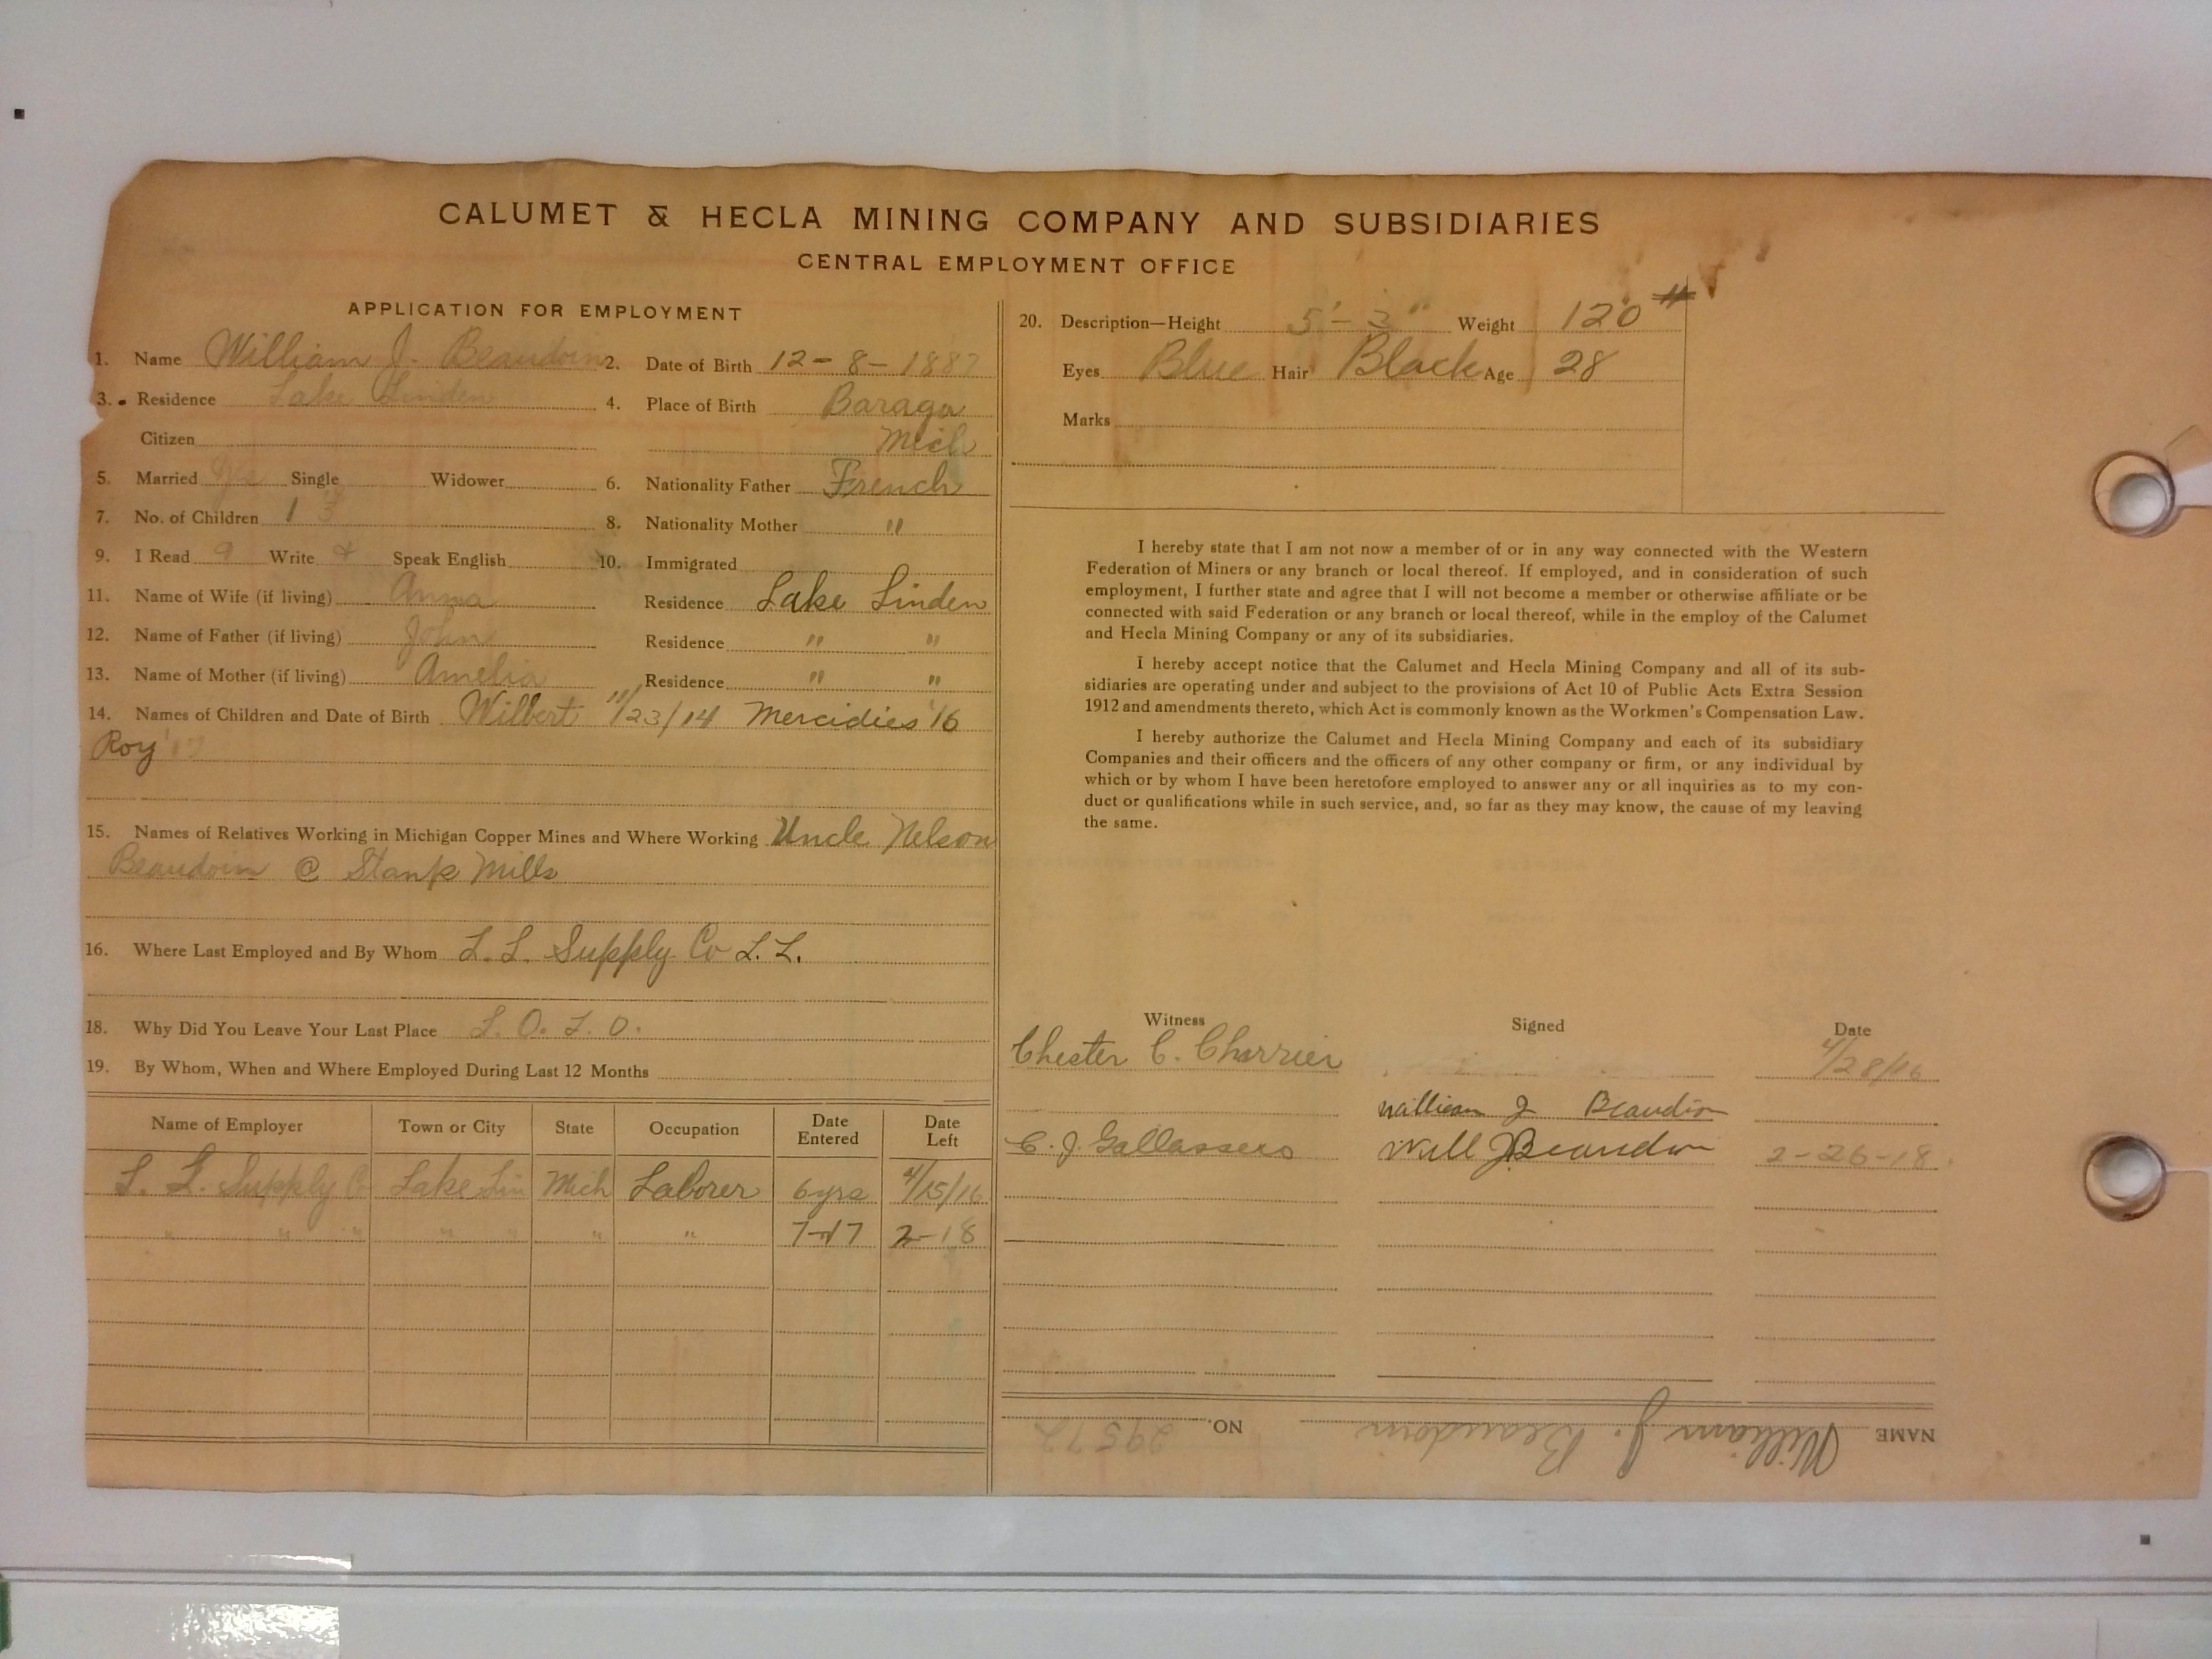 CALUMET & HECLA MINING COMPANY AND SUBSIDIARIES
CENTRAL EMPLOYMENT OFFICE
APPLICATION FOR EMPLOYMENT
1. Name William J. Beaudoin 2. Date of Birth 12-8-1887
3. Residence Lake Linden 4. Place of Birth Baraga
Citizen Mich
5. Married Single Widower 6. Nationality Father French
7. No. of Children 1 3 8. Nationality Mother "
9. I Read Write Speak English 10. Immigrated
11. Name of Wife (if living) Anna Residence Lake Linden
12. Name of Father (if living) John Residence " "
13. Name of Mother (if living) Amelia Residence " "
14. Names of Children and Date of Birth Wilbert 11/23/14 Mercidies '16
Roy '17
15. Names of Relatives Working in Michigan Copper Mines and Where Working Uncle Nelson
Beaudoin @ Stamp Mills
16. Where Last Employed and By Whom L. L. Supply Co L. L.
18. Why Did You Leave Your Last Place
19. By Whom, When and Where Employed During Last 12 Months
Name of Employer Town or City State Occupation Date Entered Date Left
L. L. Supply Co Lake Lin Mich Laborer 6 yrs 4/15/16
" " " " " " " 7-17 2-18
20. Description—Height 5'-3" Weight 120 #
Eyes Blue Hair Black Age 28
Marks
I hereby state that I am not now a member of or in any way connected with the Western
Federation of Miners or any branch or local thereof. If employed, and in consideration of such
employment, I further state and agree that I will not become a member or otherwise affiliate or be
connected with said Federation or any branch or local thereof, while in the employ of the Calumet
and Hecla Mining Company or any of its subsidiaries.
I hereby accept notice that the Calumet and Hecla Mining Company and all of its sub-
sidiaries are operating under and subject to the provisions of Act 10 of Public Acts Extra Session
1912 and amendments thereto, which Act is commonly known as the Workmen's Compensation Law.
I hereby authorize the Calumet and Hecla Mining Company and each of its subsidiary
Companies and their officers and the officers of any other company or firm, or any individual by
which or by whom I have been heretofore employed to answer any or all inquiries as to my con-
duct or qualifications while in such service, and, so far as they may know, the cause of my leaving
the same.
Witness Signed Date
Chester C. Charrier 4/28/16
William J Beaudoin
C. J. Will J Beaudoin 2-26-18
NAME William J. Beaudoin NO. 29572